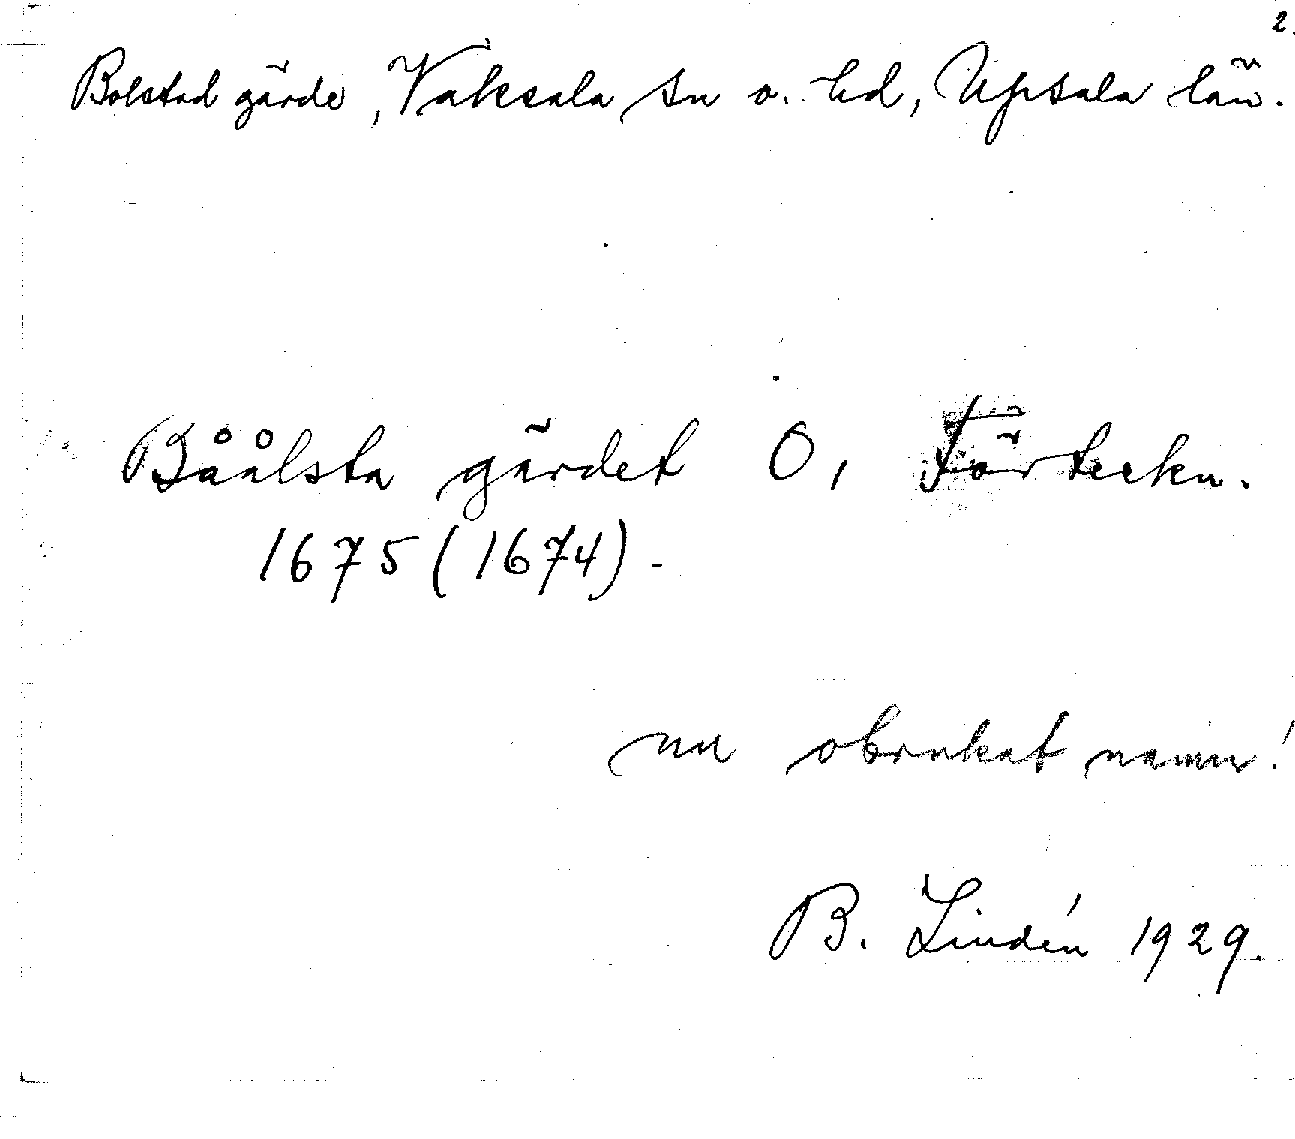 2.
Bolstad gärde, Vaksala sn o. hd, Upsala län.
Båålsta gärdet O, Förteckn.
1675 (1674).
nu obrukat namn!
B. Lindén 1929.